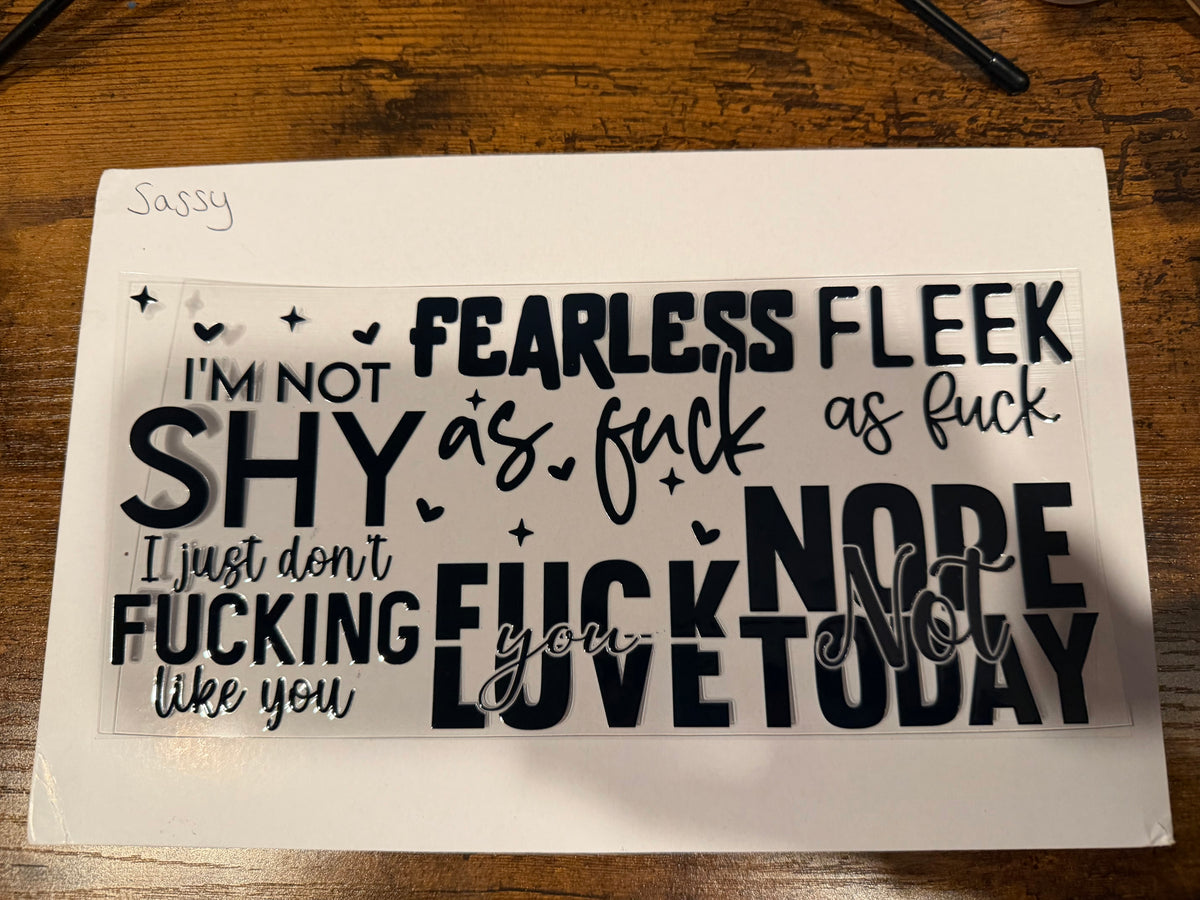 Sassy
I'M NOT
SHY
I just don't
FUCKING
like you
FEARLESS
as fuck
FLEEK
as fuck
FUCK
you
LOVE
NOPE
Not
TODAY